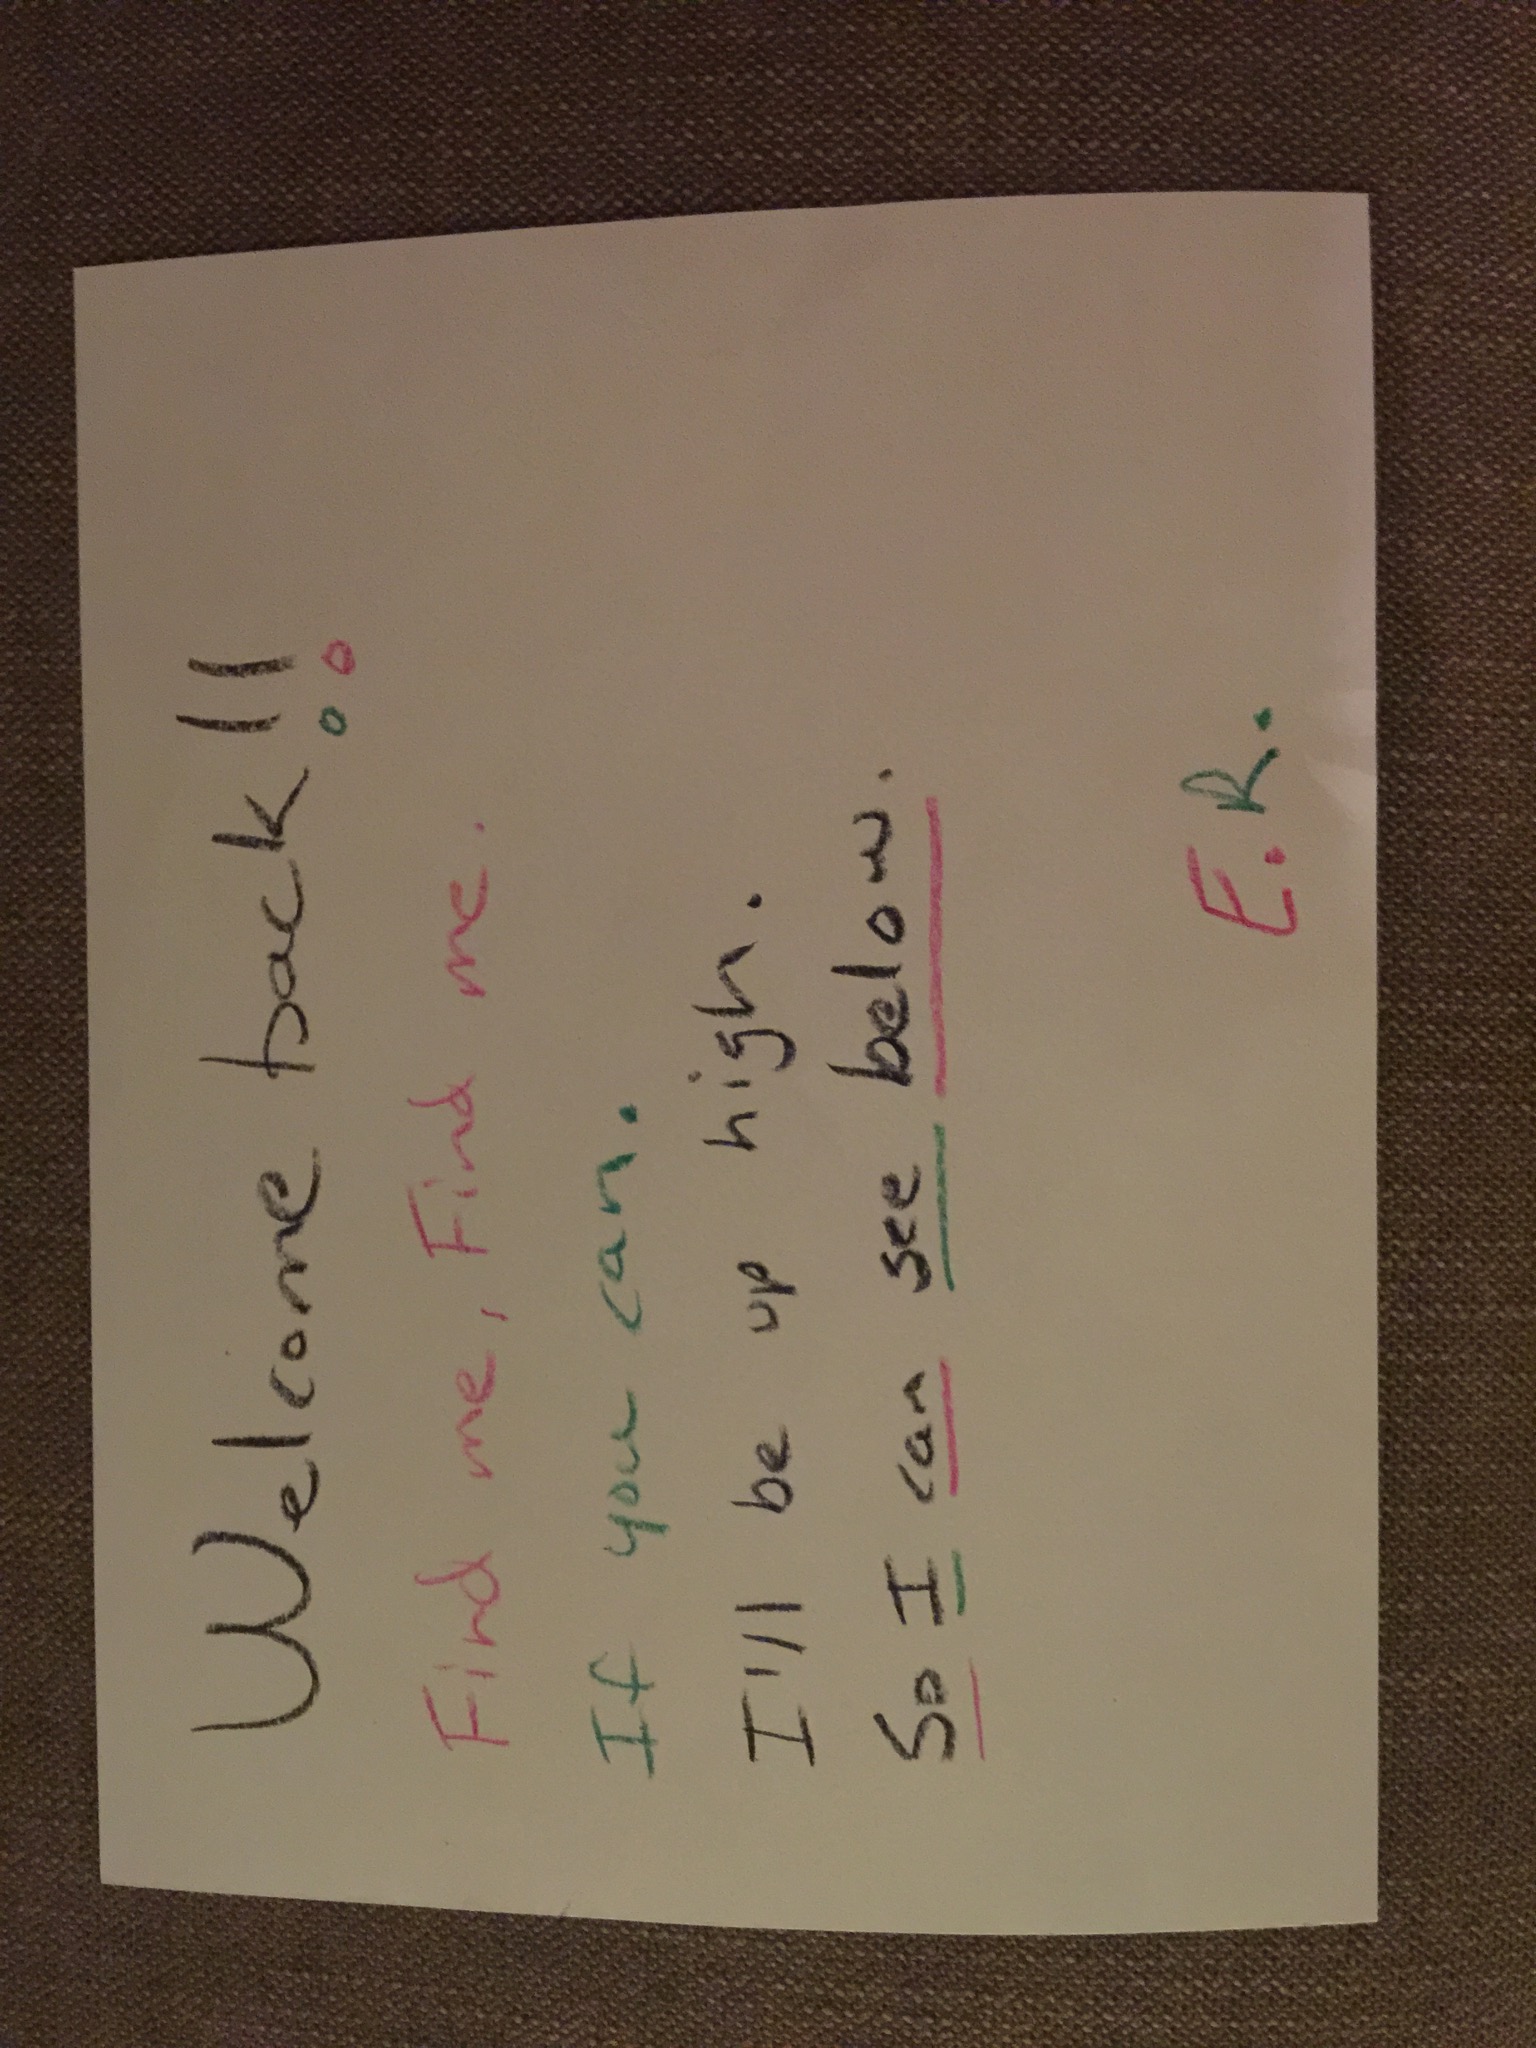 Welcome back!!
Find me, Find me.
If you can.
I'll be up high.
So I can see below.
E.R.